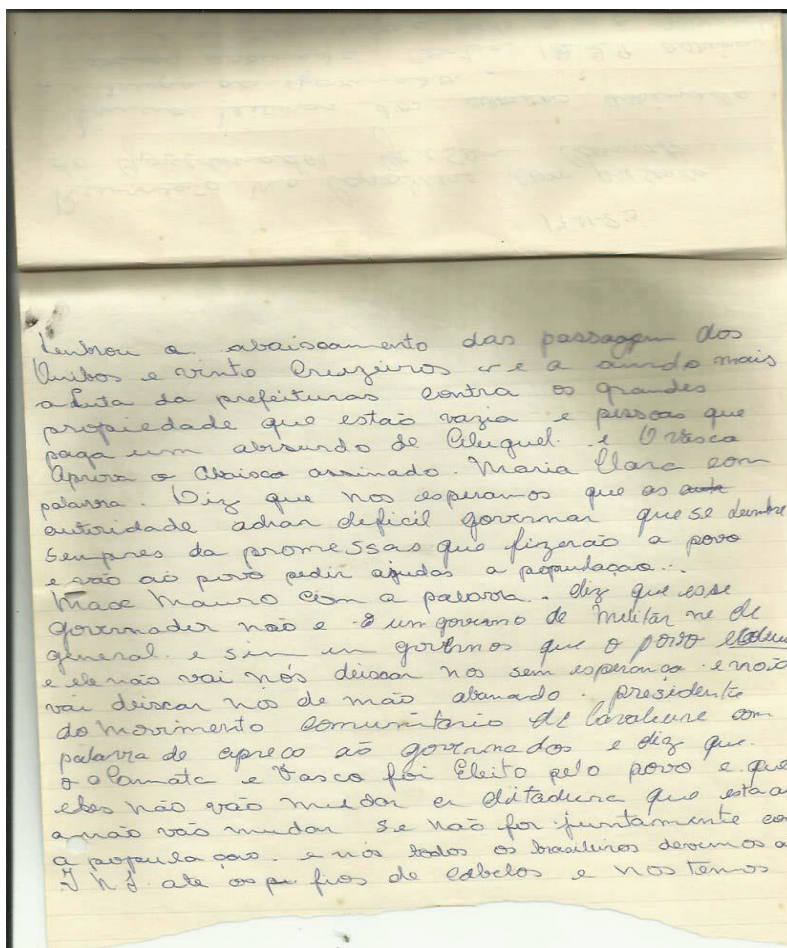 Lembrou a abaiscamento das passagem dos
Onibos e vinte Cruzeiros e a aindo mais
a Luta da prefeituras contra os grandes
propiedade que estão vazia e pessoas que
paga um absurdo de Aluguel. e O vasco
Aprova o Abaisco assinado. Maria Clara com
palavra. Diz que nos esperamos que as
autoridade achar deficil governar que se lembre
sempres da promessas que fizerão a povo
e vão ao povo pedir ajudas a população..
Mace Mauro com a palavra.. diz que esse
governador não e um governo de militar ne de
general e sim un governos que o povo
e ele não vai nós deiscar nos sem esperança e não
vai deiscar nós de mão abanado. presidente
do movimento comunitario de com
palavra de apreco aõ governados e diz que.
o e Vasco foi Eleito pelo povo e que
eles não vão mudar a ditadura que esta a
a não vão mudar se não for juntamente co
a população. e nós todos os brasileiros devemos a
ate os fios de cabelos e nos temos